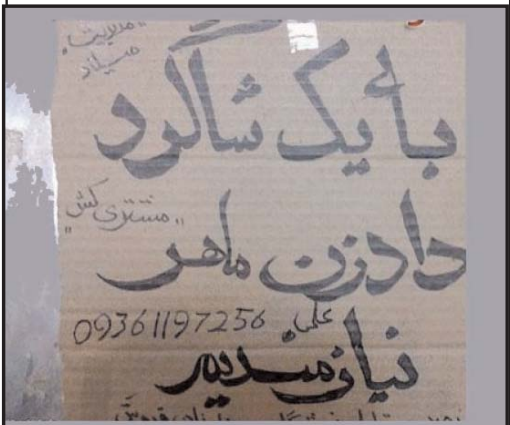 "مدیریت
میلاد"
بأ یک شاگرد
"مشتری کش"
دادزن ماهر
علی 09361197256
نیازمندیم